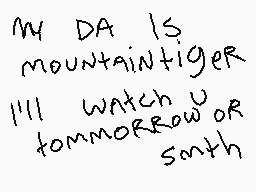 my DA IS
MOUNTAINtigeR
I'll WAtCH U
tOMMORROW OR
smth